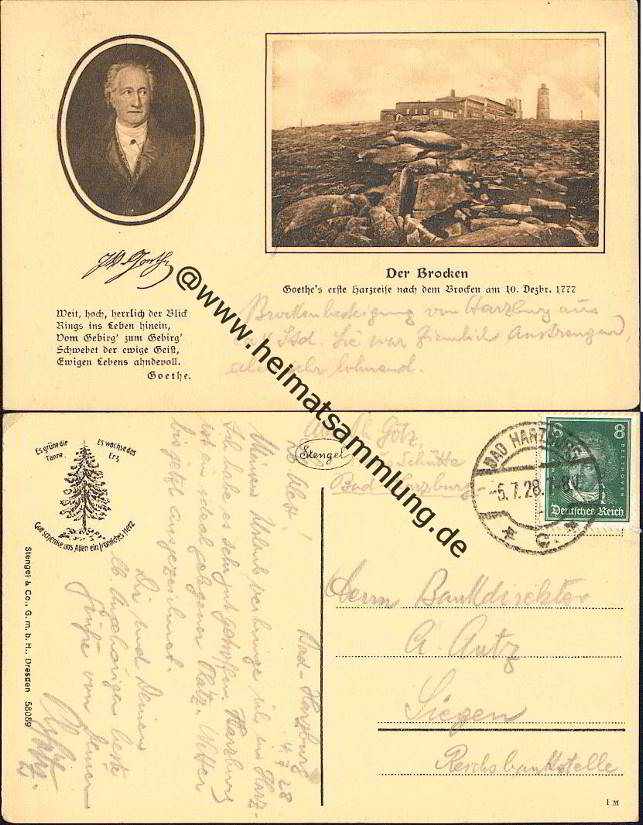 J W Goethe
Der Brocken
Goethe's erste Harzreise nach dem Brocken am 10. Dezbr. 1777
Weit, hoch, herrlich der Blick
Rings ins Leben hinein,
Vom Gebirg' zum Gebirg'
Schwebet der ewige Geist,
Ewigen Lebens ahndevoll.
Goethe.
Brockenbesteigung von Harzburg aus
Std. Sie war ziemlich Anstrengend,
aber sehr lohnend.
@www.heimatsammlung.de
Es grüne die Tanne,
Es wachse das Erz,
Gott schenke uns Allen ein fröhliches Herz
Stengel & Co., G. m. b. H., Dresden 58089
Stengel
Götz,
Schütte
Bad Harzburg
BAD HARZBURG
-5.7.28.
8
BEETHOVEN
Deutsches Reich
Bad-Harzburg
28
Meinen Urlaub verbringe ich im Harz.
Ich habe es sehr gut getroffen. Harzburg
ist ein ideal gelegener Platz. Wetter
bis jetzt ausgezeichnet.
Dir und Deinen
Angehörigen beste
Grüße von Deinem
Herrn Bankdirektor
A. Autz
Siegen
Reichsbankstelle
1 M